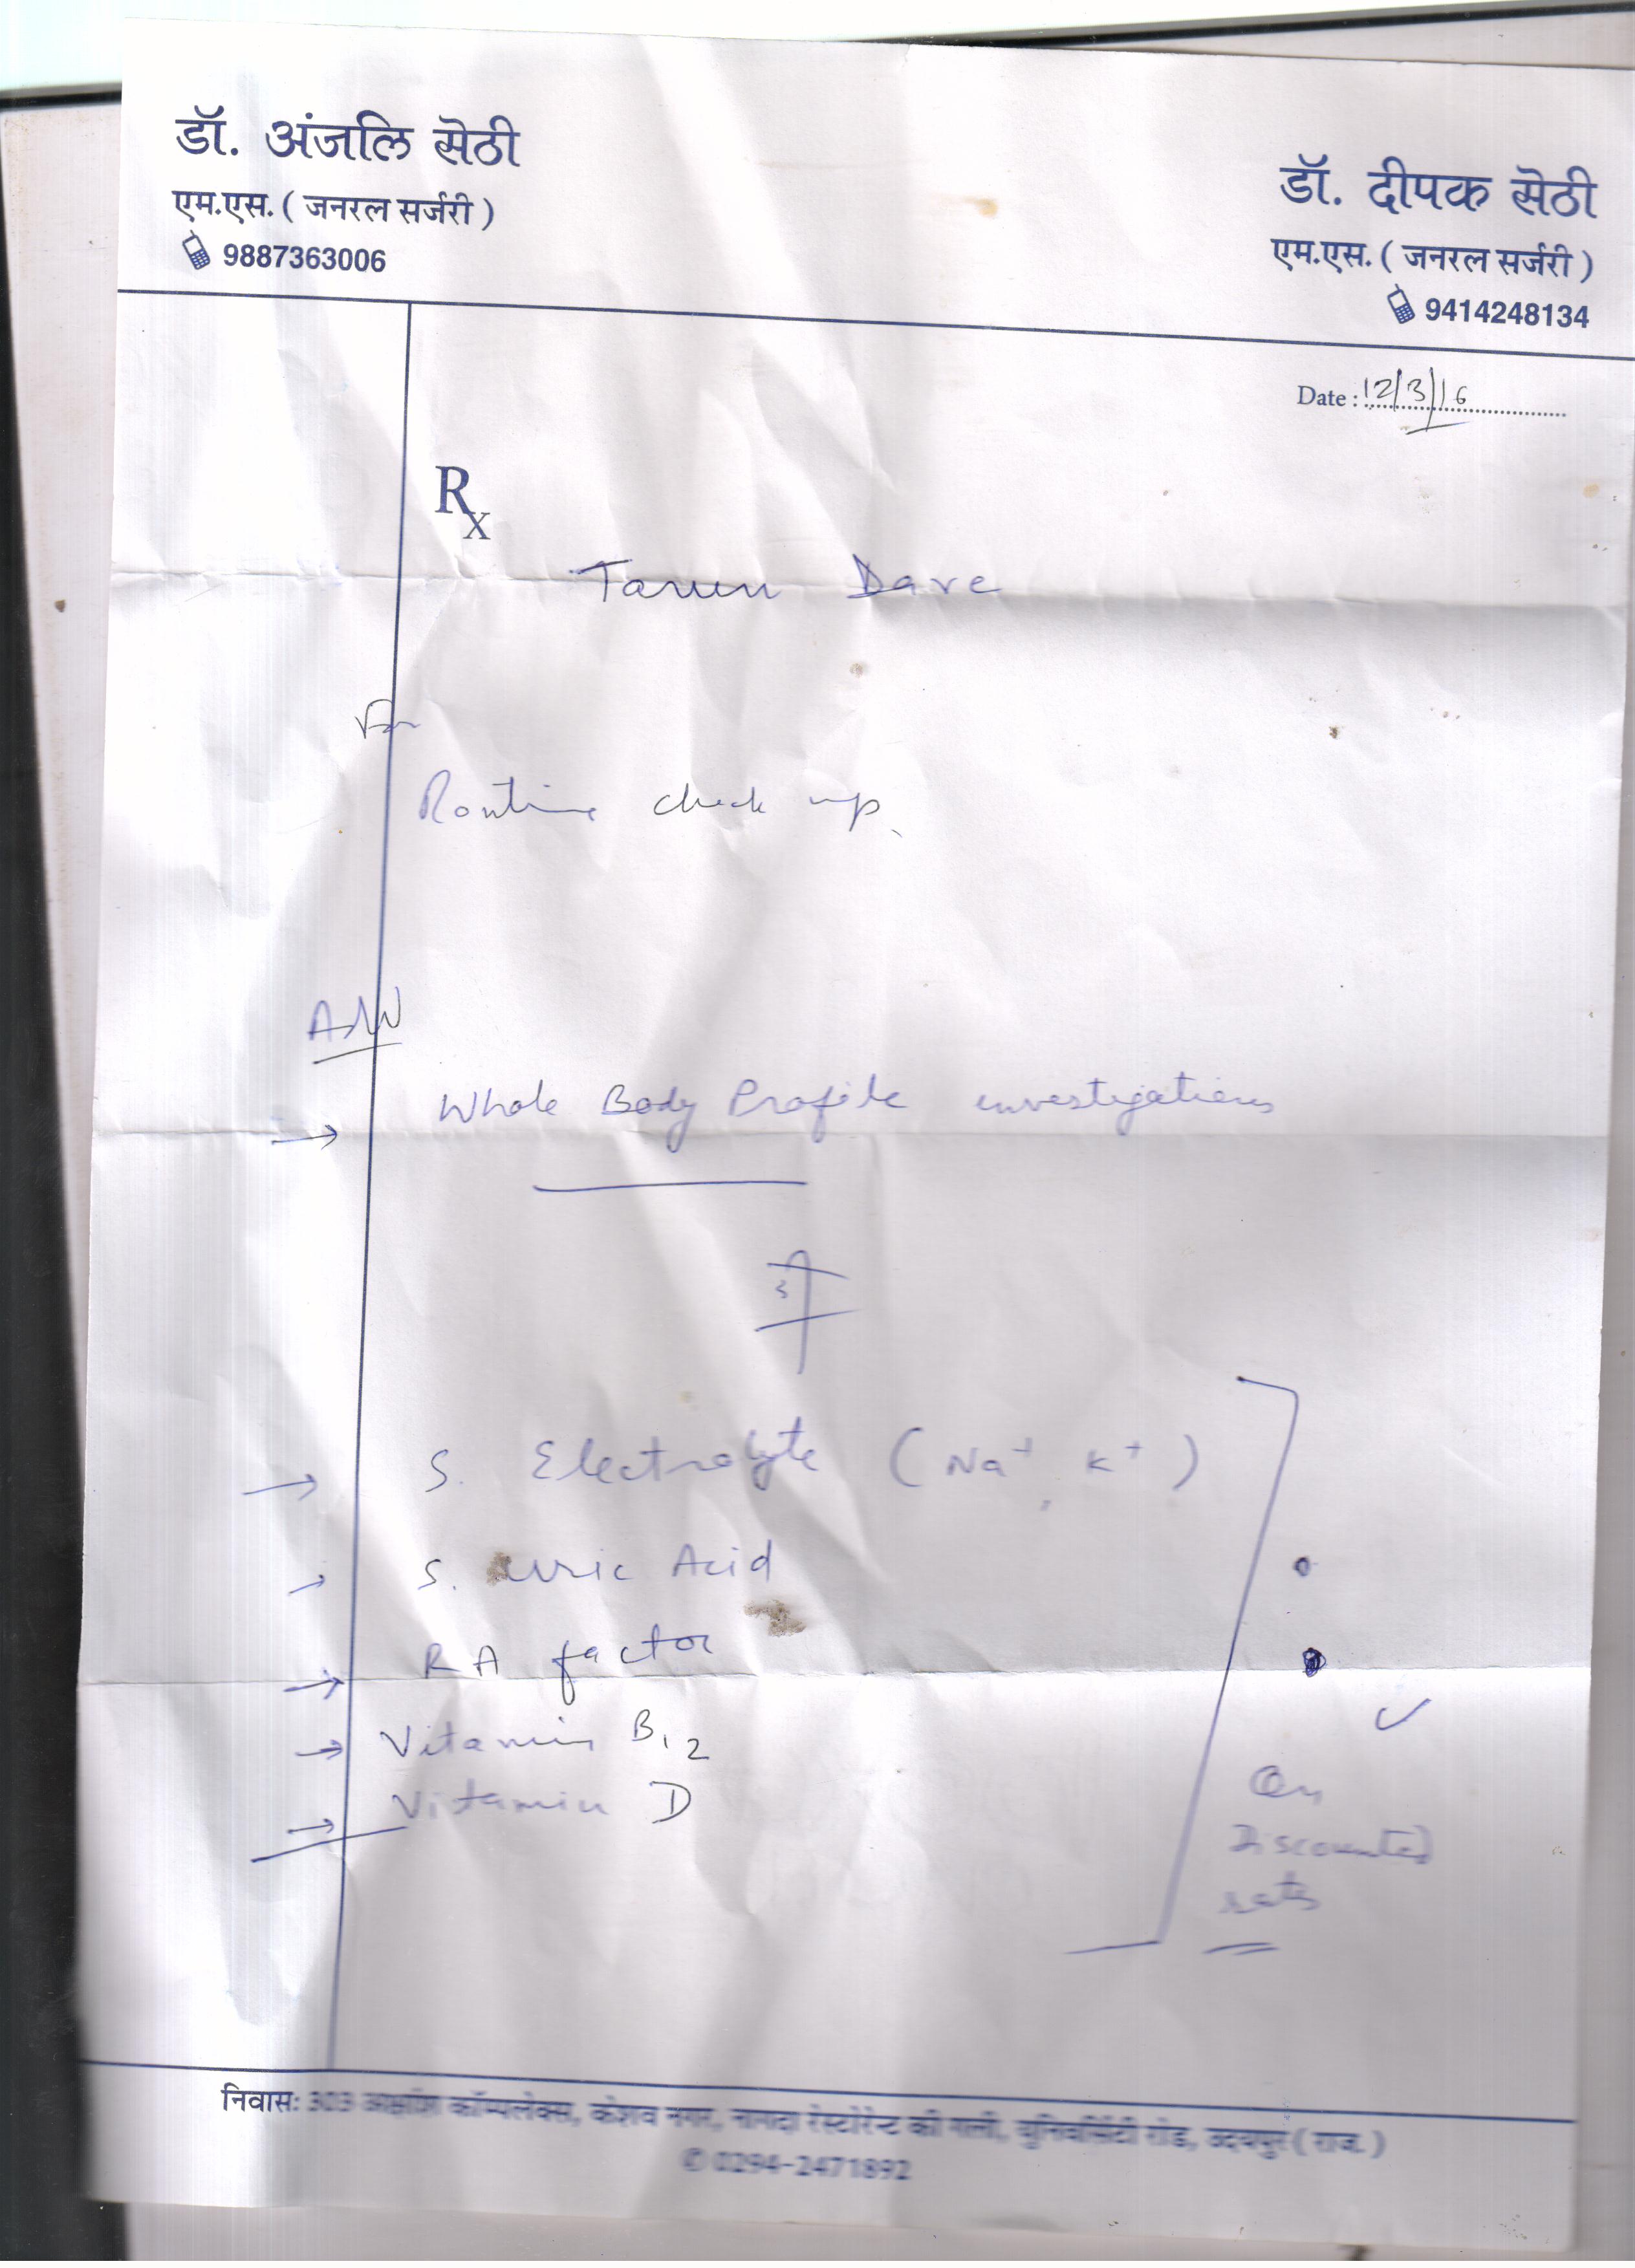 डॉ. अंजलि सेठी
एम.एस. ( जनरल सर्जरी )
9887363006
डॉ. दीपक सेठी
एम.एस. ( जनरल सर्जरी )
9414248134
Date : 12/3/16
Rx
Tarun Dave
For
Routine check up
Adv
Whole Body Profile investigations
S. Electrolyte ( Na+, K+ )
S. Uric Acid
RA factor
Vitamin B12
Vitamin D
On
Discounted
rates
निवास: 303 कॉम्पलेक्स, केशव नगर, नागदा रेस्टोरेन्ट की गली, युनिवर्सिटी रोड, उदयपुर ( राज. )
✆ 0294-2471892